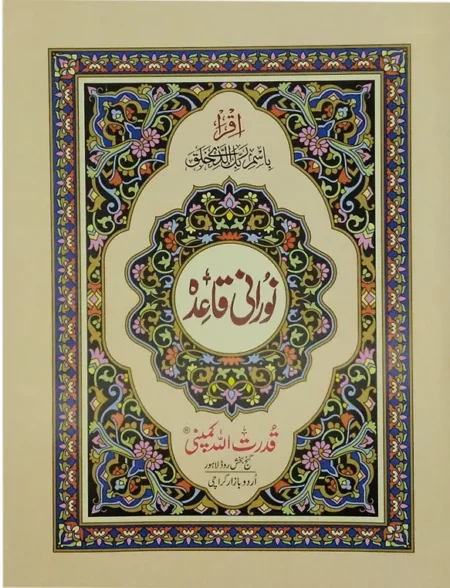 اِقْرَاْ
بِاسْمِ رَبِّكَ الَّذِیْ خَلَقَ
نُورانی قاعِدہ
قُدرت اللہ کمپنی ®
گنج بخش روڈ لاہور
اُردو بازار کراچی